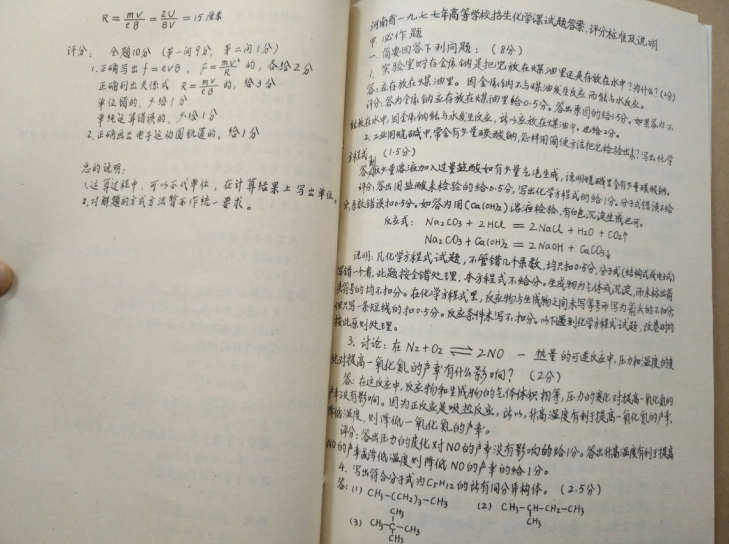 R = mv/eB = 2U/BV = 15厘米
评分: 全题10分 (第一问9分, 第二问1分)
1.正确写出 f=evB、F=mv²/R 的, 各给2分
正确列出关系式 R=mv/eB 的, 给3分
单位错的, 少给1分
单纯运算错误的, 少给1分
2.正确画出电子运动圆轨道的, 给1分
总的说明:
1.运算过程中, 可以不代单位, 在计算结果上写出单位。
2.对解题的方式方法暂不作统一要求。
河南省一九七七年高等学校招生化学课试题答案,评分标准及说明
甲 必作题
一 简要回答下列问题: (8分)
1. 实验室贮存金属钠是把它放在煤油里还是存放在水中?为什么?(2分)
答:应存放在煤油里。因金属钠不与煤油发生反应而能与水反应。
评分:答为金属钠应存放在煤油里给0.5分。答出原因的给1.5分。如果答为不
能放在水中,因金属钠能与水发生反应,所以应放在煤油中。也给2分。
2.工业用烧碱中,常含有少量碳酸钠,怎样用简便方法把它检验出来?写出化学
方程式 (1.5分)
答:取少量溶液加入过量盐酸如有少量气泡生成,说明烧碱里含有少量碳酸钠。
评分:答出用盐酸来检验的给0.5分,写出化学方程式的给1分。分子式错误不给
分,系数错误扣0.5分。如答为用(Ca(OH)₂)溶液检验,有白色沉淀生成也可。
反应式: Na₂CO₃ + 2HCl = 2NaCl + H₂O + CO₂↑
Na₂CO₃ + Ca(OH)₂ = 2NaOH + CaCO₃↓
说明:凡化学方程式试题,不管错几个系数,均只扣0.5分,分子式(结构式或电子式)
写错一个者,此题按全错处理,本方程式不给分。生成物为气体或沉淀,而未标出箭
头符号的均不扣分。在化学方程式里,反应物与生成物之间未写等号而写为箭头的不扣分
但只写一条短线的扣0.5分。反应条件未写不扣分。以下遇到化学方程式试题,改卷时均
按此原则处理。
3. 讨论:在 N₂+O₂ ⇌ 2NO − 热量的可逆反应中,压力和温度的变
化对提高一氧化氮的产率有什么影响? (2分)
答:在这反应中,反应物和生成物的气体体积相等,压力的变化对提高一氧化氮的
产率没有影响。因为正反应是吸热反应,所以,升高温度有利于提高一氧化氮的产率,
降低温度,则降低一氧化氮的产率。
评分:答出压力的变化对NO的产率没有影响的给1分。答出升高温度有利于提高
NO的产率或降低温度则降低NO的产率的给1分。
4. 写出符合分子式为C₅H₁₂的所有同分异构体。 (2.5分)
答:(1) CH₃-(CH₂)₃-CH₃ (2) CH₃-CH-CH₂-CH₃
CH₃ CH₃
(3) CH₃-C-CH₃
CH₃